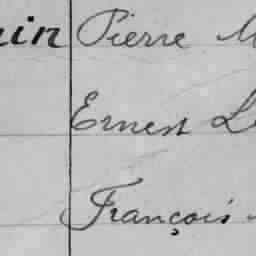 Pierre
Ernest
François